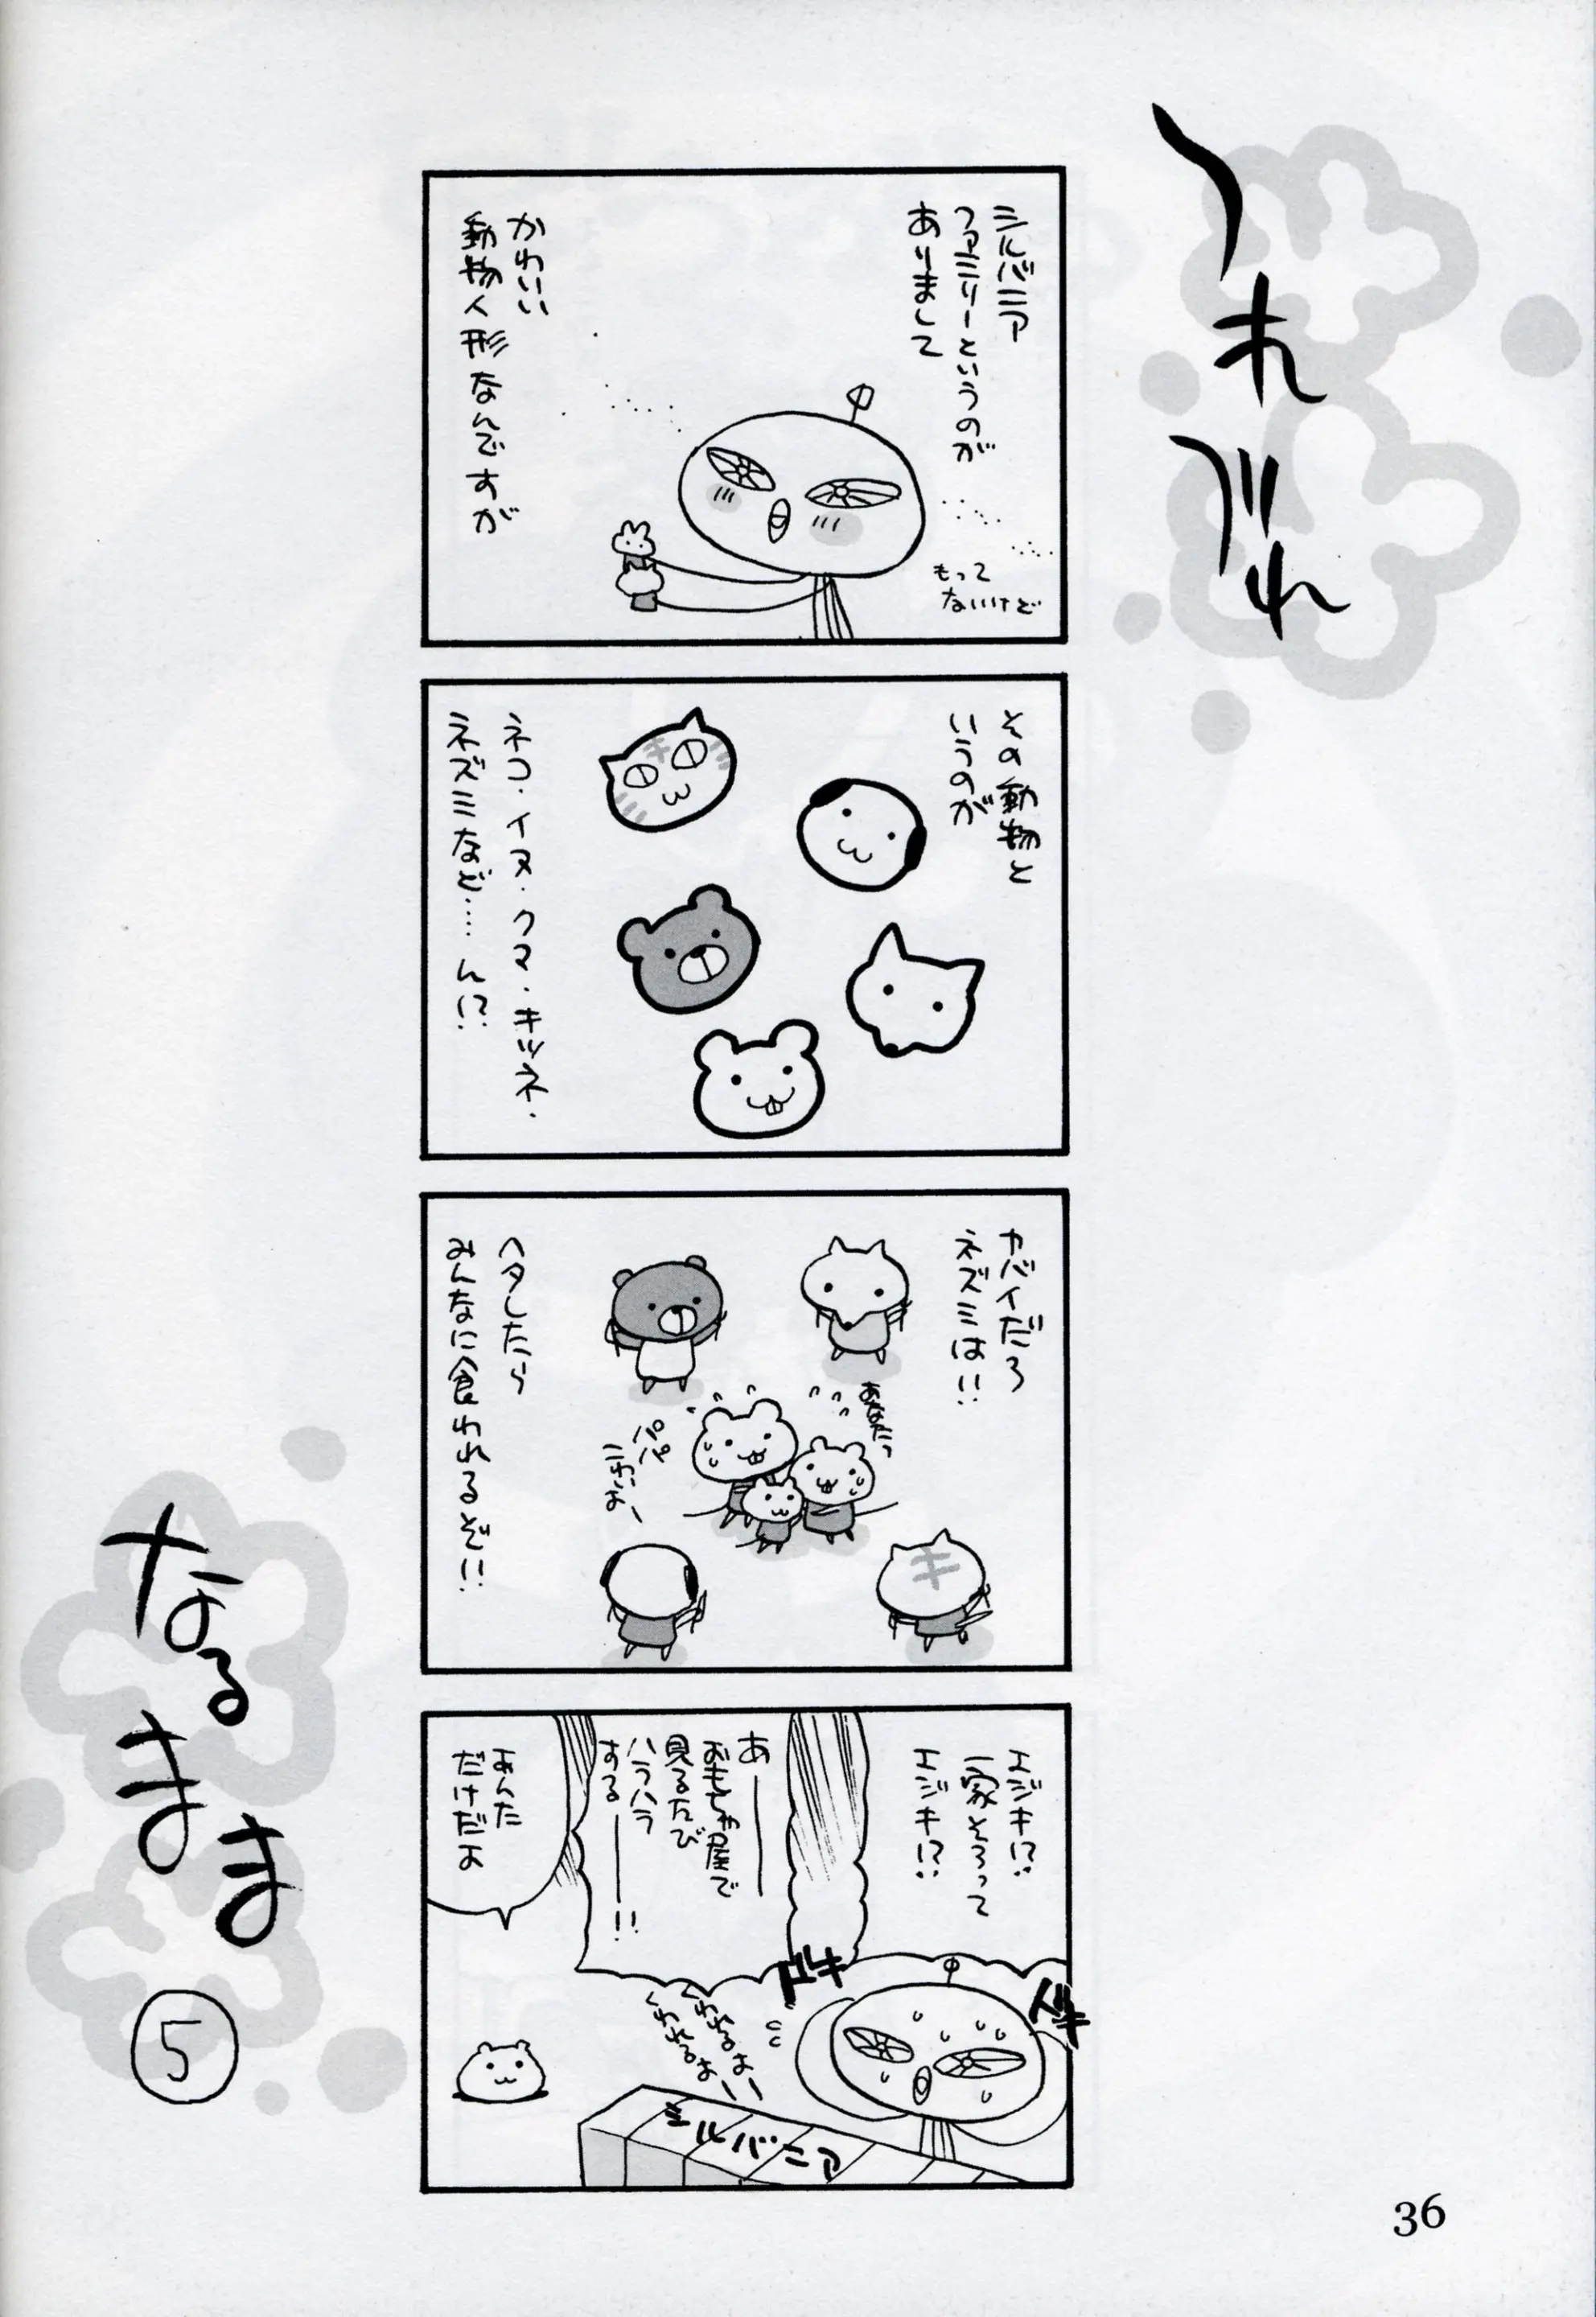 つれ
づれ
シルバニア
ファミリーというのが
ありまして
かわいい
動物人形なんですが
もって
ないけど
その動物と
いうのが
ネコ・イヌ・クマ・キツネ・
ネズミなど…… ん!?
ヤバイだろ
ネズミは!!
あなたっ
パパ
ヘタしたら
みんなに食われるぞ!!
エジキ!?
一家そろって
エジキ!?
あ――
おもちゃ屋で
見るたび
ハラハラ
する――!!
あんた
だけだよ
ドキ
ドキ
くわれるよー
くわれるよー
シルバニア
なる
まま
5
36